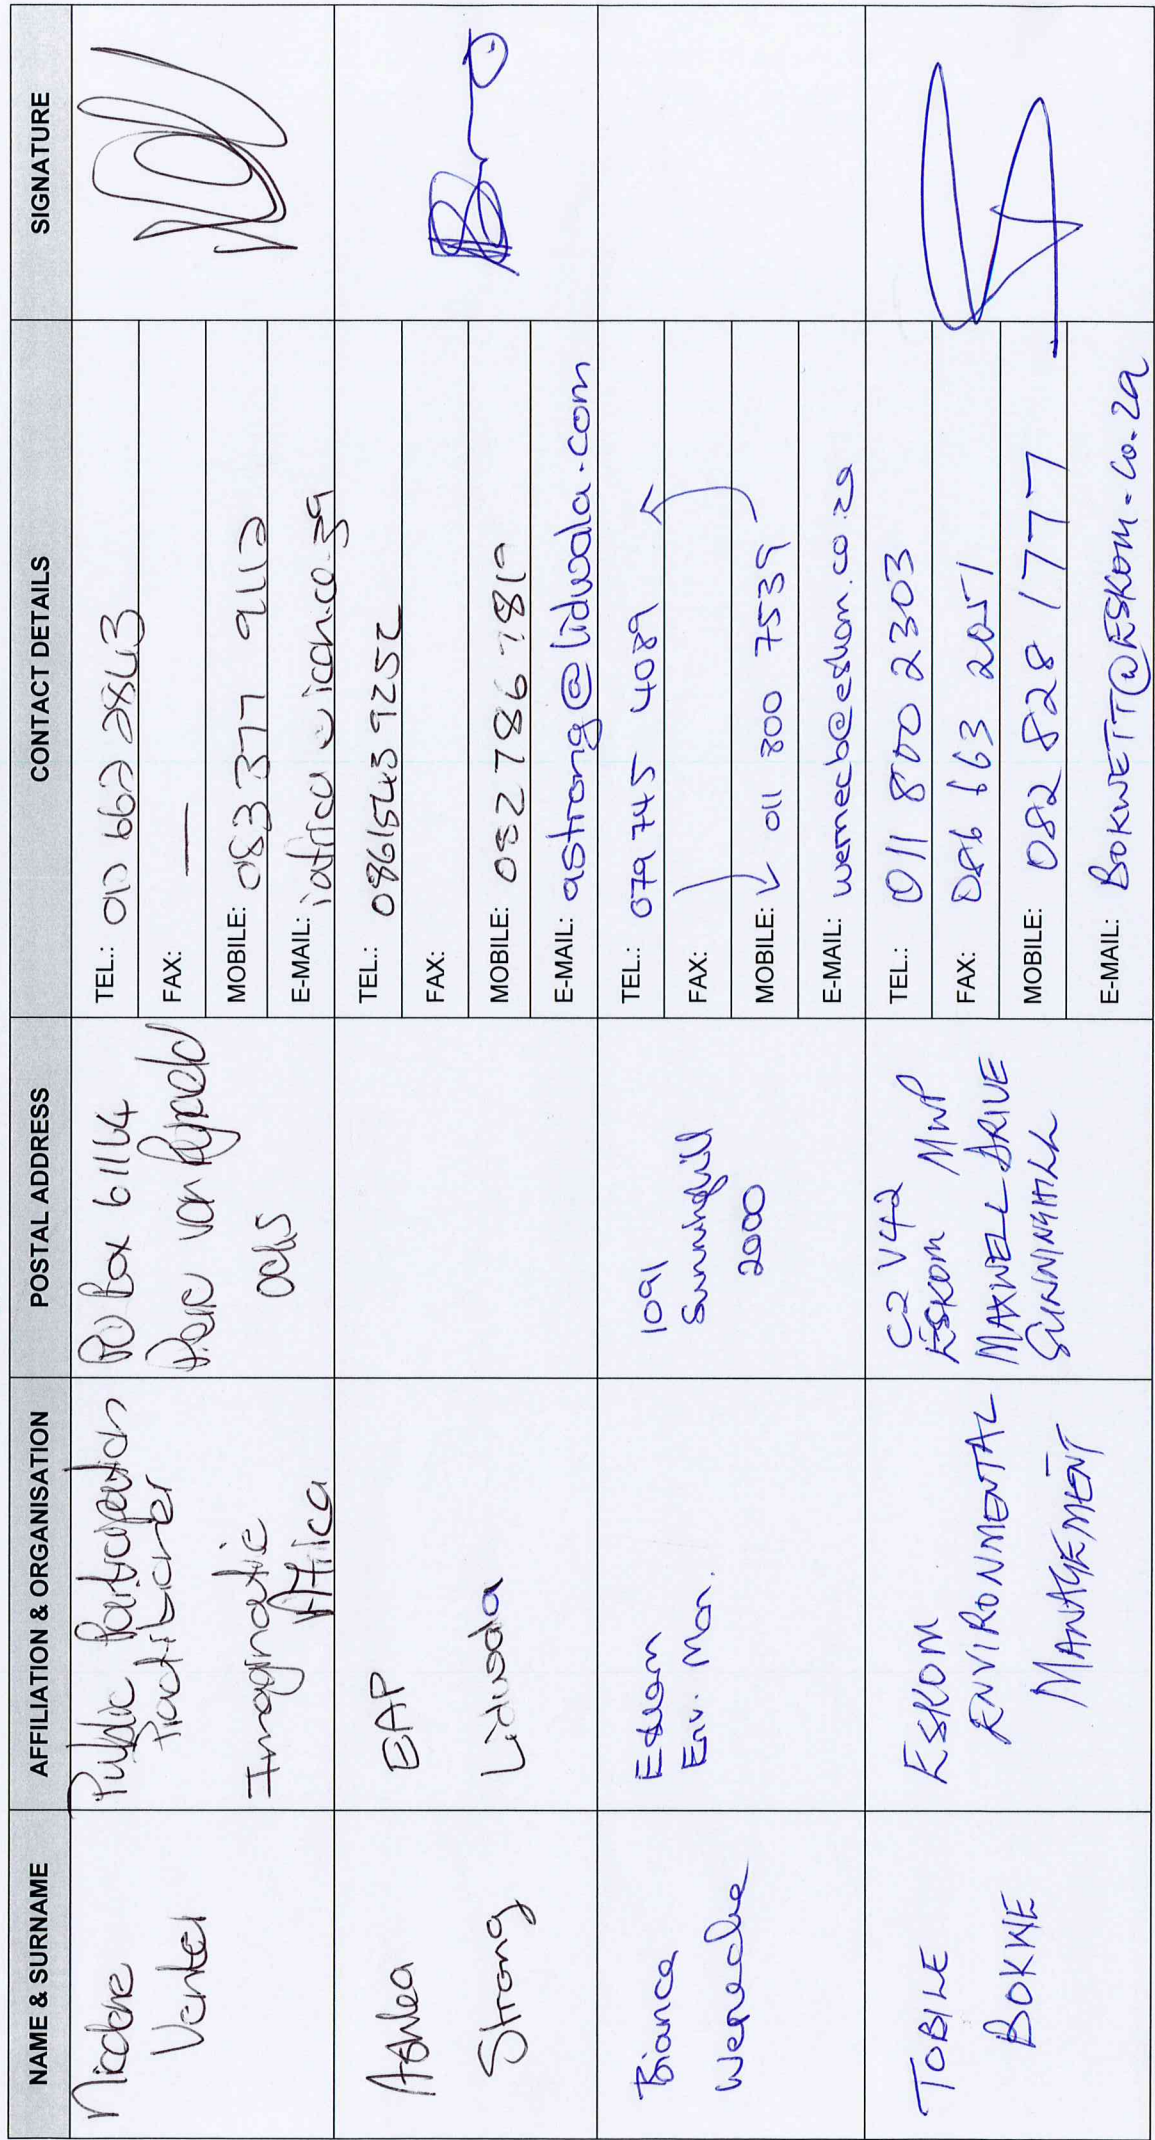 NAME & SURNAME
AFFILIATION & ORGANISATION
POSTAL ADDRESS
CONTACT DETAILS
SIGNATURE
Nicolene
Venter
Public Participation
Practitioner
Imaginative
Africa
PO Box 61164
van Ryneveld
0045
TEL.: 012 662 2843
FAX: —
MOBILE: 083 377 9112
E-MAIL:
Ashlea
Strong
EAP
Lidwala
TEL.: 0861543 9252
FAX:
MOBILE: 082 786 7819
E-MAIL: astrong@lidwala.com
Bianca
Wernecke
Eskom
Env. Man.
1091
Sunninghill
2000
TEL.: 079 745 4089
FAX:
MOBILE: 011 800 7539
E-MAIL: wernecb@eskom.co.za
TOBILE
BOKWE
ESKOM
ENVIRONMENTAL
MANAGEMENT
C2 V42
ESKOM MWP
MAXWELL DRIVE
SUNNINGHILL
TEL.: 011 800 2303
FAX: 086 663 2051
MOBILE: 082 828 1777
E-MAIL: BOKWETT@ESKOM.Co.Za